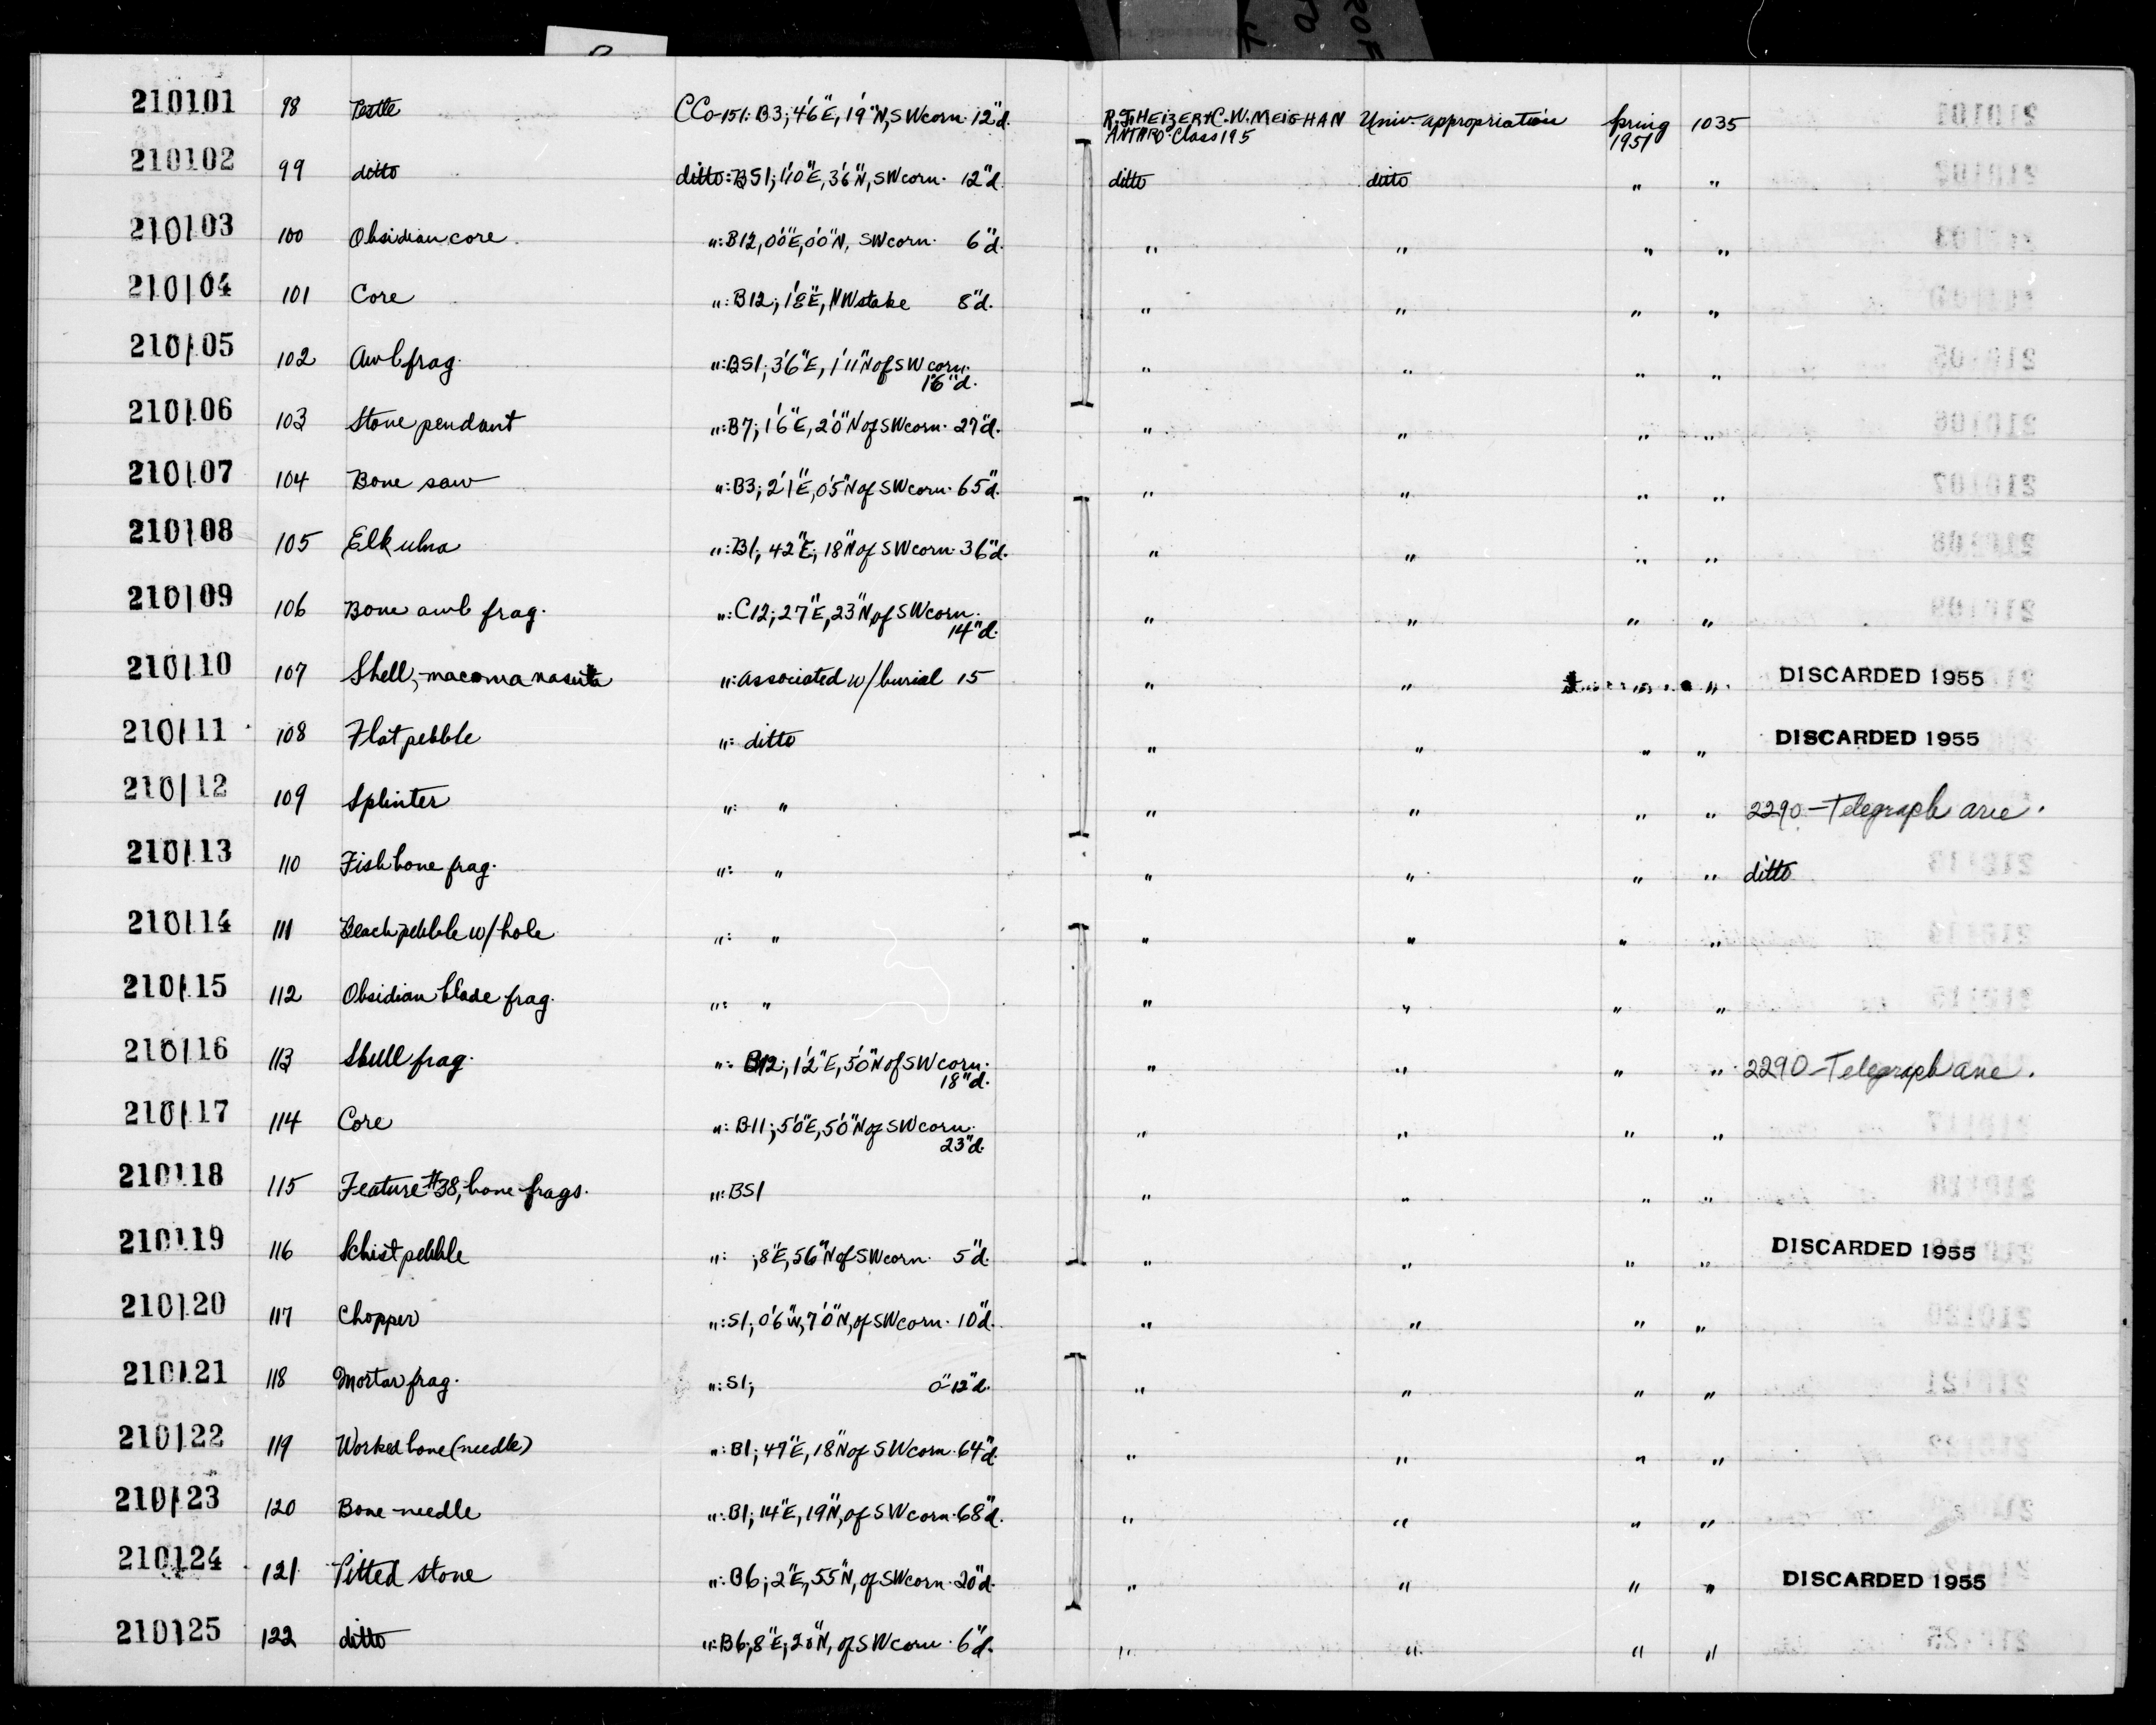 210101 98 Pestle CCo-151: B3; 4'6"E, 1'9"N, SW corn. 12"d. R.F. HEIZER & C.W. MEIGHAN Univ. appropriation Spring 1035
ANTHRO. Class 195 1951
210102 99 ditto ditto: BS1; 1'10"E, 3'6"N, SW corn. 12"d. ditto ditto " "
210103 100 Obsidian core. ": B12, 0'0"E, 0'0"N, SW corn. 6"d. " " " "
210104 101 Core ": B12; 1'8"E, NW stake 8"d. " " " "
210105 102 Awl frag. ": BS1; 3'6"E, 1'11"N of SW corn. " " " "
1'6"d.
210106 103 Stone pendant ": B7; 1'6"E, 2'0"N of SW corn. 27"d. " " " "
210107 104 Bone saw ": B3; 2'1"E, 0'5"N of SW corn. 65"d. " " " "
210108 105 Elk ulna ": B1; 42"E; 18"N of SW corn. 36"d. " " " "
210109 106 Bone awl frag. ": C12; 27"E, 23"N, of SW corn. " " " "
14"d.
210110 107 Shell, - macoma nasuta ": associated w/ burial 15 " " " " DISCARDED 1955
210111 108 Flat pebble ": ditto " " " " DISCARDED 1955
210112 109 Splinter ": " " " " " 2290 - Telegraph ave.
210113 110 Fish bone frag. ": " " " " " ditto
210114 111 Beach pebble w/ hole ": " " " " "
210115 112 Obsidian blade frag. ": " " " " "
210116 113 Skull frag. ": B12; 1'2"E, 5'0"N of SW corn. " " " " 2290 - Telegraph ave.
18"d.
210117 114 Core ": B11; 5'0"E, 5'0"N of SW corn. " " " "
23"d.
210118 115 Feature #38, bone frags. ": BS1 " " " "
210119 116 Schist pebble ": ; 8"E, 56"N of SW corn. 5"d. " " " " DISCARDED 1955
210120 117 Chopper ": S1; 0'6"W, 7'0"N, of SW corn. 10"d. " " " "
210121 118 Mortar frag. ": S1; 0-12"d. " " " "
210122 119 Worked bone (needle) ": B1; 47"E, 18"N of SW corn. 64"d. " " " "
210123 120 Bone needle ": B1; 14"E, 19"N, of SW corn. 68"d. " " " "
210124 121 Pitted stone ": B6; 2"E, 55"N, of SW corn. 20"d. " " " " DISCARDED 1955
210125 122 ditto ": B6; 8"E; 20"N, of SW corn. 6"d. " " " "